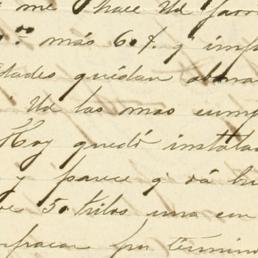 me hace Ud favor
más 6%. y imp
dades quedan abona
Ud las mas cump
Hoy quedó instala
y parece q. vá bi
50 kilos una con
por termin